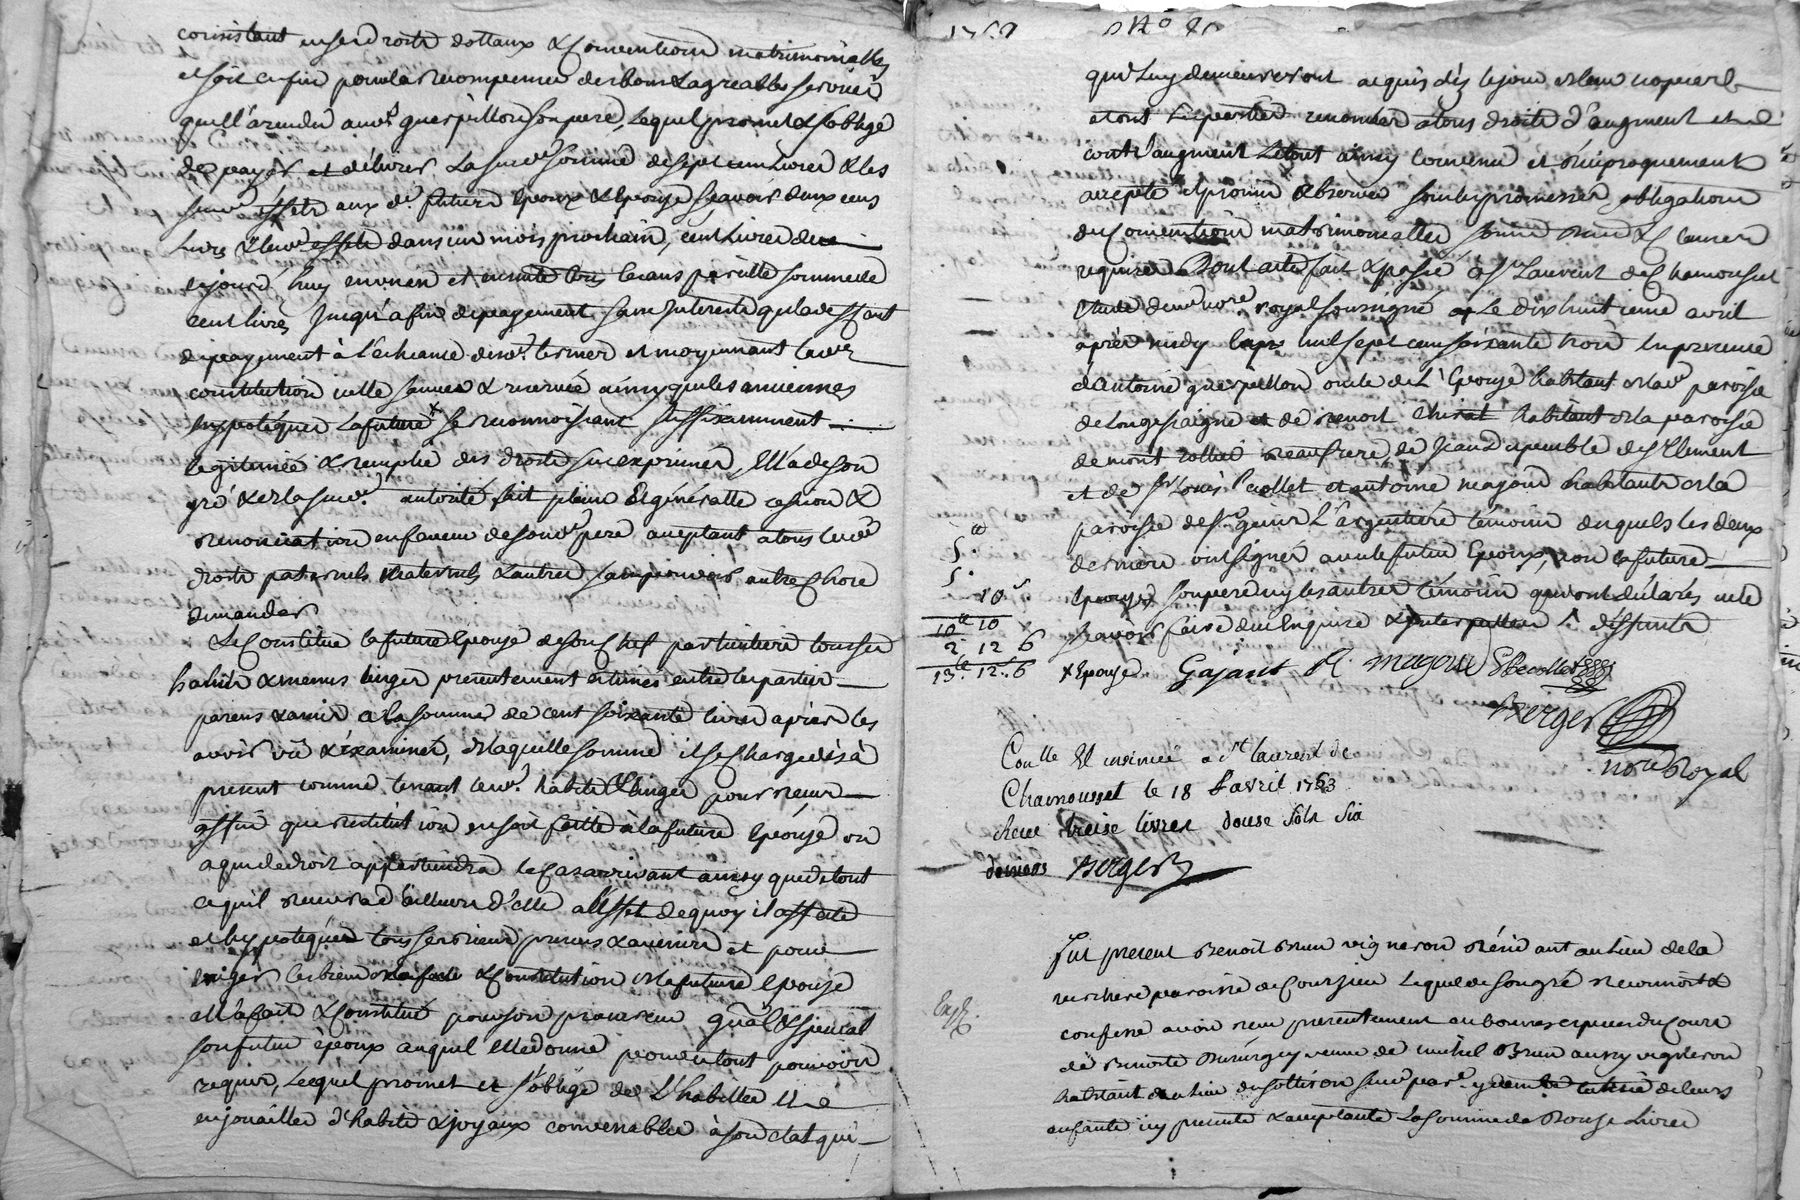 consistant en ses droits dottaux & Conventions matrimonialles
et soit enfin pour la recompense des bons & agreables services
quell'a rendu aud. guerpillon son pere, lequel promet & s'oblige
de payer et délivrer la susd. somme de sept cens livres & les
susd. effets aux de futurs Epoux & Epouse sçavoir deux cens
Livres & leurs effets dans un mois prochain, cent livres de ce
jourd'huy en un an et ensuite tous les ans pareille somme de
cent livres jusqu'à fin de payement sans interests qu'à deffaut
de payement à l'echeance desd. termes et moyennant lad.
constitution icelle sauve & reservée ainsy que les anciennes
hypoteques La future + se reconnoissant suffisamment
legitimée & remplie des droits sus exprimés, Elle a de son
gré & de la susd. autorité fait pleine & généralle cession &
renonciation en faveur de sond. pere acceptant a tous lesd.
droits paternels maternels & autres sans pouvoir autre chose
demander
Se Constitue la future Epouse de son chef particulier trousse
habits & menus linges presentement estimés entre les parties
parens & amis a la somme de cent soixante livres apres les
avoir vû & examinés, de laquelle somme il se charge dès à
present comme tenant lesd. habits & linges pour reçus
affin que restitution en soit faitte à la future Epouse ou
a qui de droit appartiendra le cas arrivant ainsy que de tout
ce qu'il recevra d'ailleurs d'elle a l'effet de quoy il affecte
et hypoteque tous ses biens presens & avenirs et pour
exiger les biens & Constitution de la future Epouse
elle a fait & Constitué pour son procureur gñal & special
son futur époux auquel elle donne pour ce tout pouvoir
requis, Lequel promet et s'oblige de L'habiller et
enjouailler d'habits & joyaux convenables à son etat qui
1763
qui Luy demeureront acquis dès le jour de leurs nopces
et ont Lesd. parties renoncé a tous droits d'augment et de
contr'augment Le tout ainsy convenu et reciproquement
accepté et promis observer sous les promesses, obligations
du Conventions matrimonialles soumis renon. & Clauses
requises Dont acte fait & passé a St Laurent de Chamousset
Etude du nore royal soussigné Le dix huitieme avril
après midy mil sept cens soixante trois En presence
d'antoine guerpillon oncle de L'Epouse habitant de la paroisse
de longessaigne et de benoit habitant de la paroisse
de mont rottier beaufrere, de Jean Dapemble de St Clement
et de Sr Louis Ecollet et antoine magoud habitants de la
paroisse de St genis L'argentiere témoins desquels les deux
derniers ont signé avec le futur Epoux, non la future
Epouse, son pere ny les autres témoins qui ont déclarés ne le
sçavoir faire de ce Enquis & Interpellés
+ Epouse Gajant A. magoud Ecollet
Berger
nore Royal
5 tt
5
10 s
10 tt 10
2. 12 6
13 tt 12 s 6
Conlle Et insinué a St laurent de
Chamousset le 18 avril 1763
Receu treize livres douse sols six
deniers Berger
Exp.
fut present Benoit Brun vigneron résidant au lieu de la
paroisse de Coursieu Lequel de son gré reconnoit &
confesse avoir reçu presentement en bonnes especes du Cours
de Benoite veuve de michel Brun aussy vigneron
habitant au lieu du Sottison susd. par.
enfants icy presente & acceptante La somme de Douse Livres